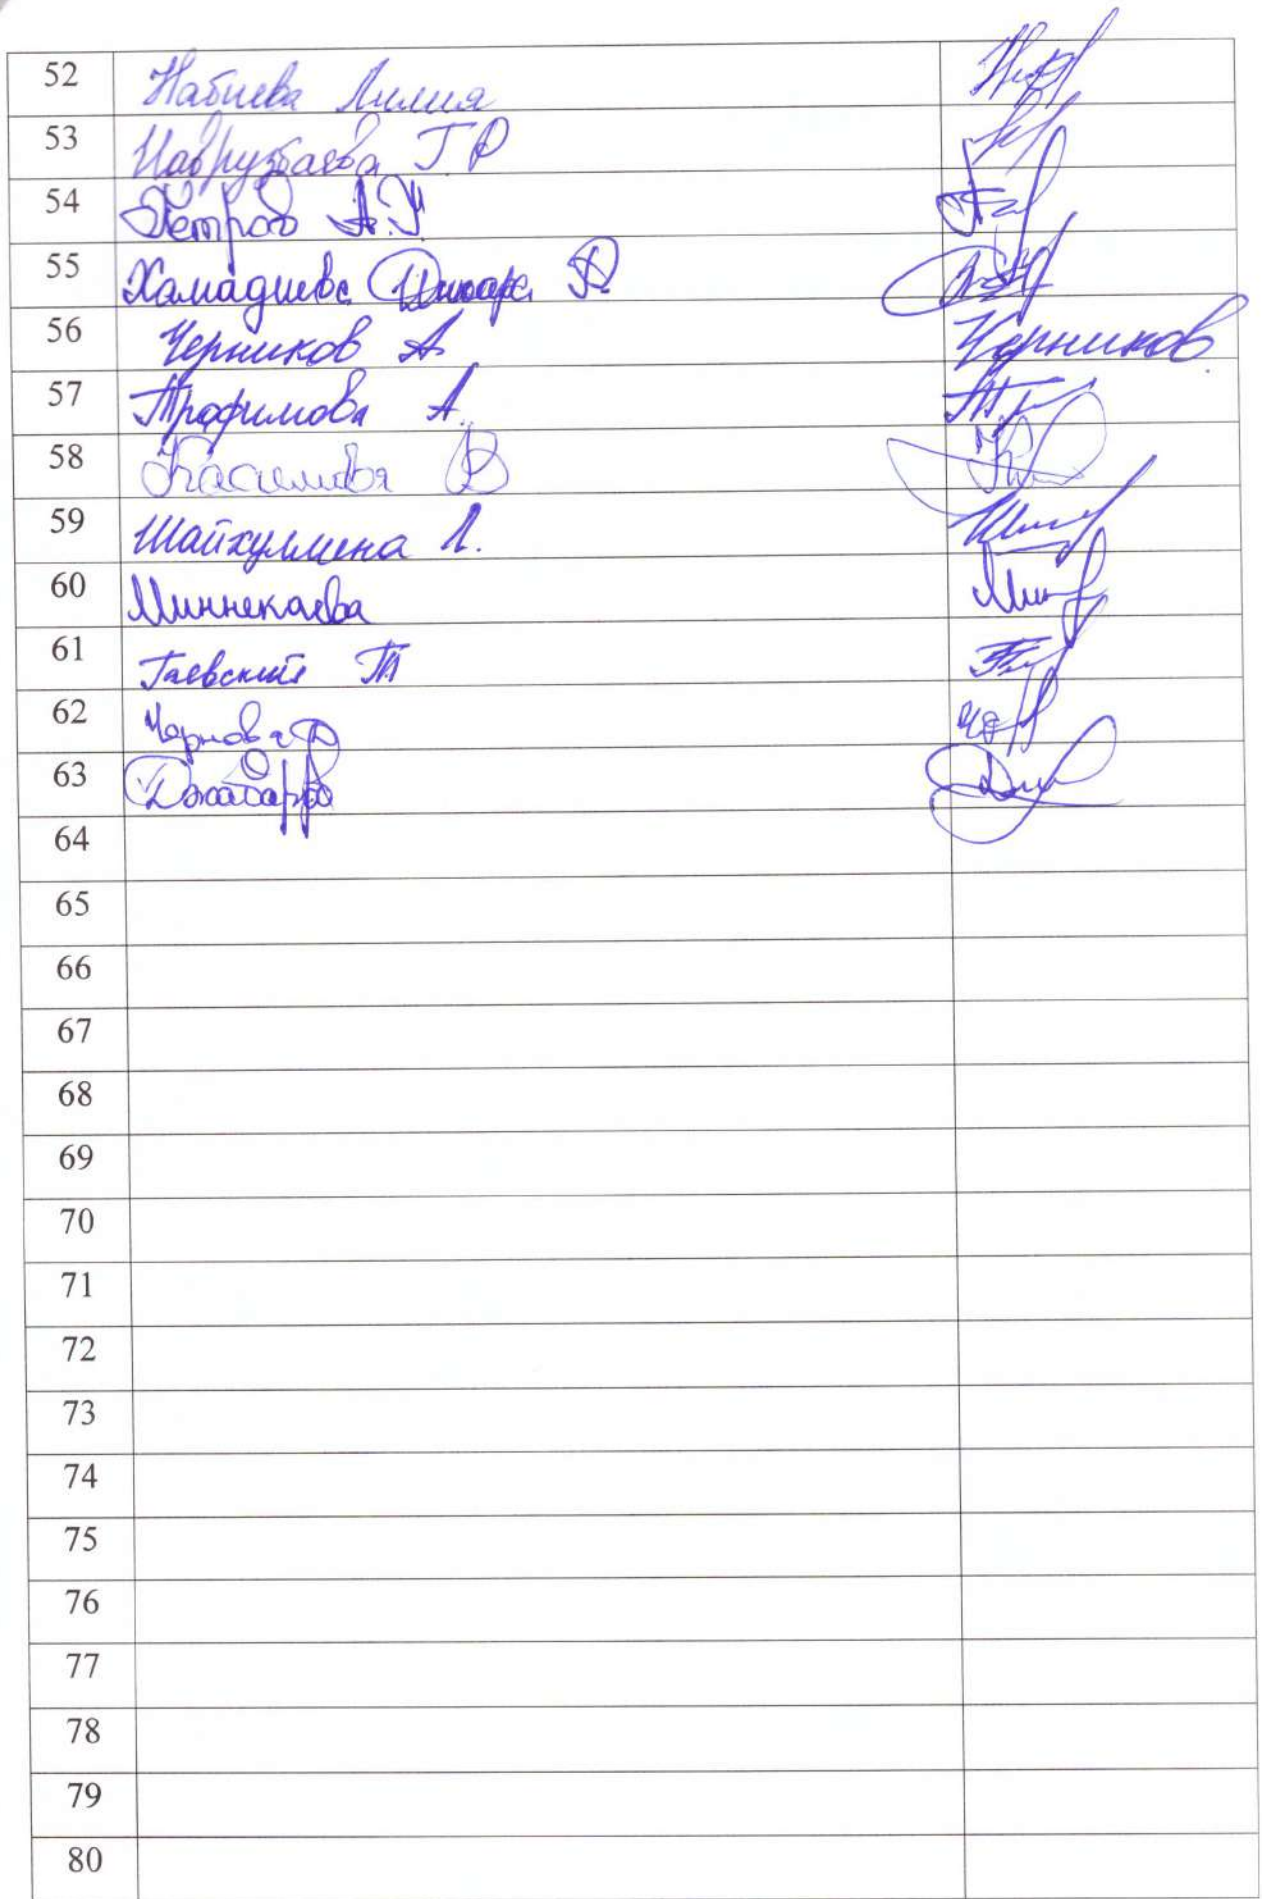 52 Набиева Лилия
53 Наврузбаева Г Р
54 Петров А.
55 Хамадиева Динара
56 Черников А. Черников
57 Трофимова А.
58 Касимова В
59 Шайхуллина Л.
60 Миннекаева
61 Гаевский Т
62 Чернова Д
63 Джабарова
64
65
66
67
68
69
70
71
72
73
74
75
76
77
78
79
80